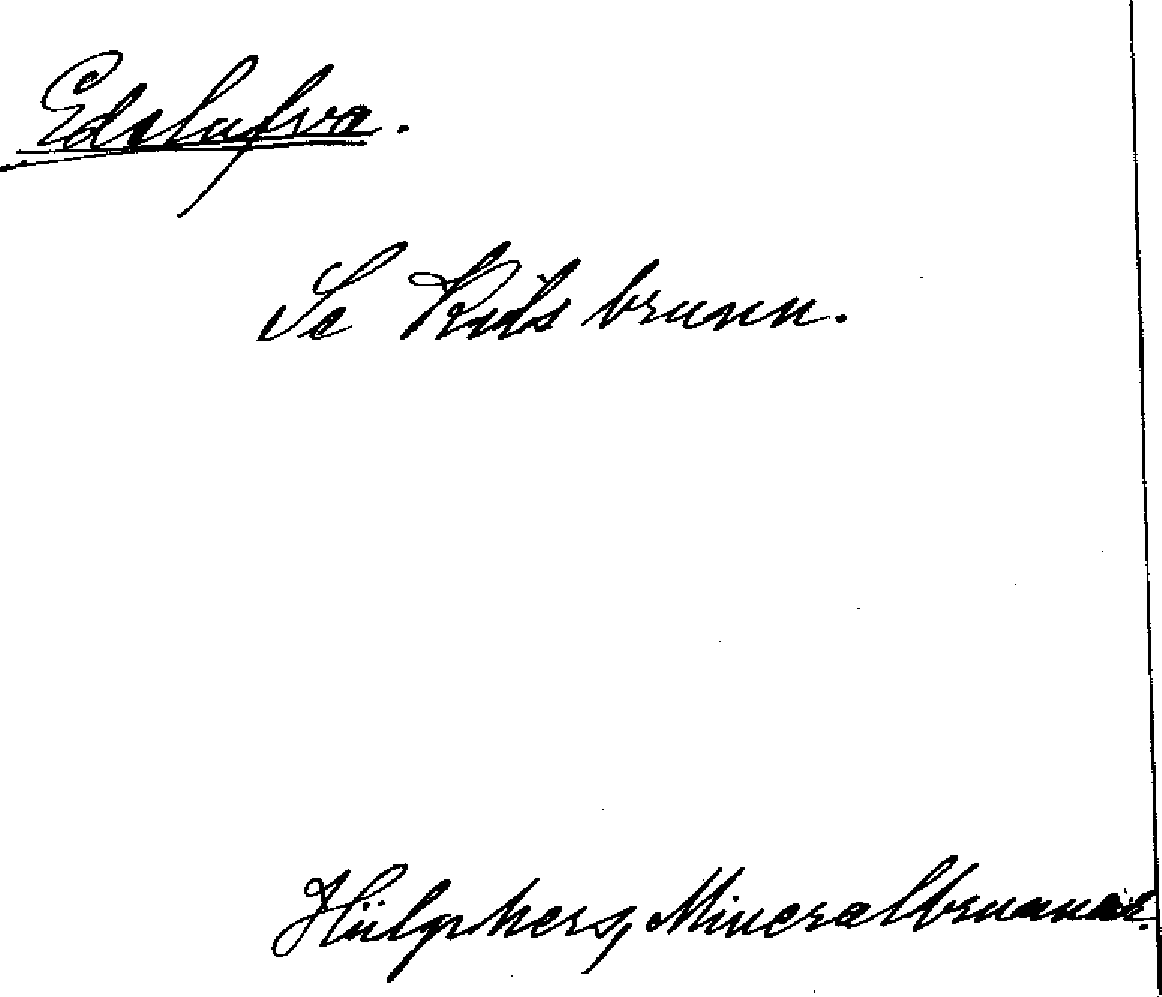 Edslufva.
Se Kuls brunn.
Hülphers, Mineralbrunnar.